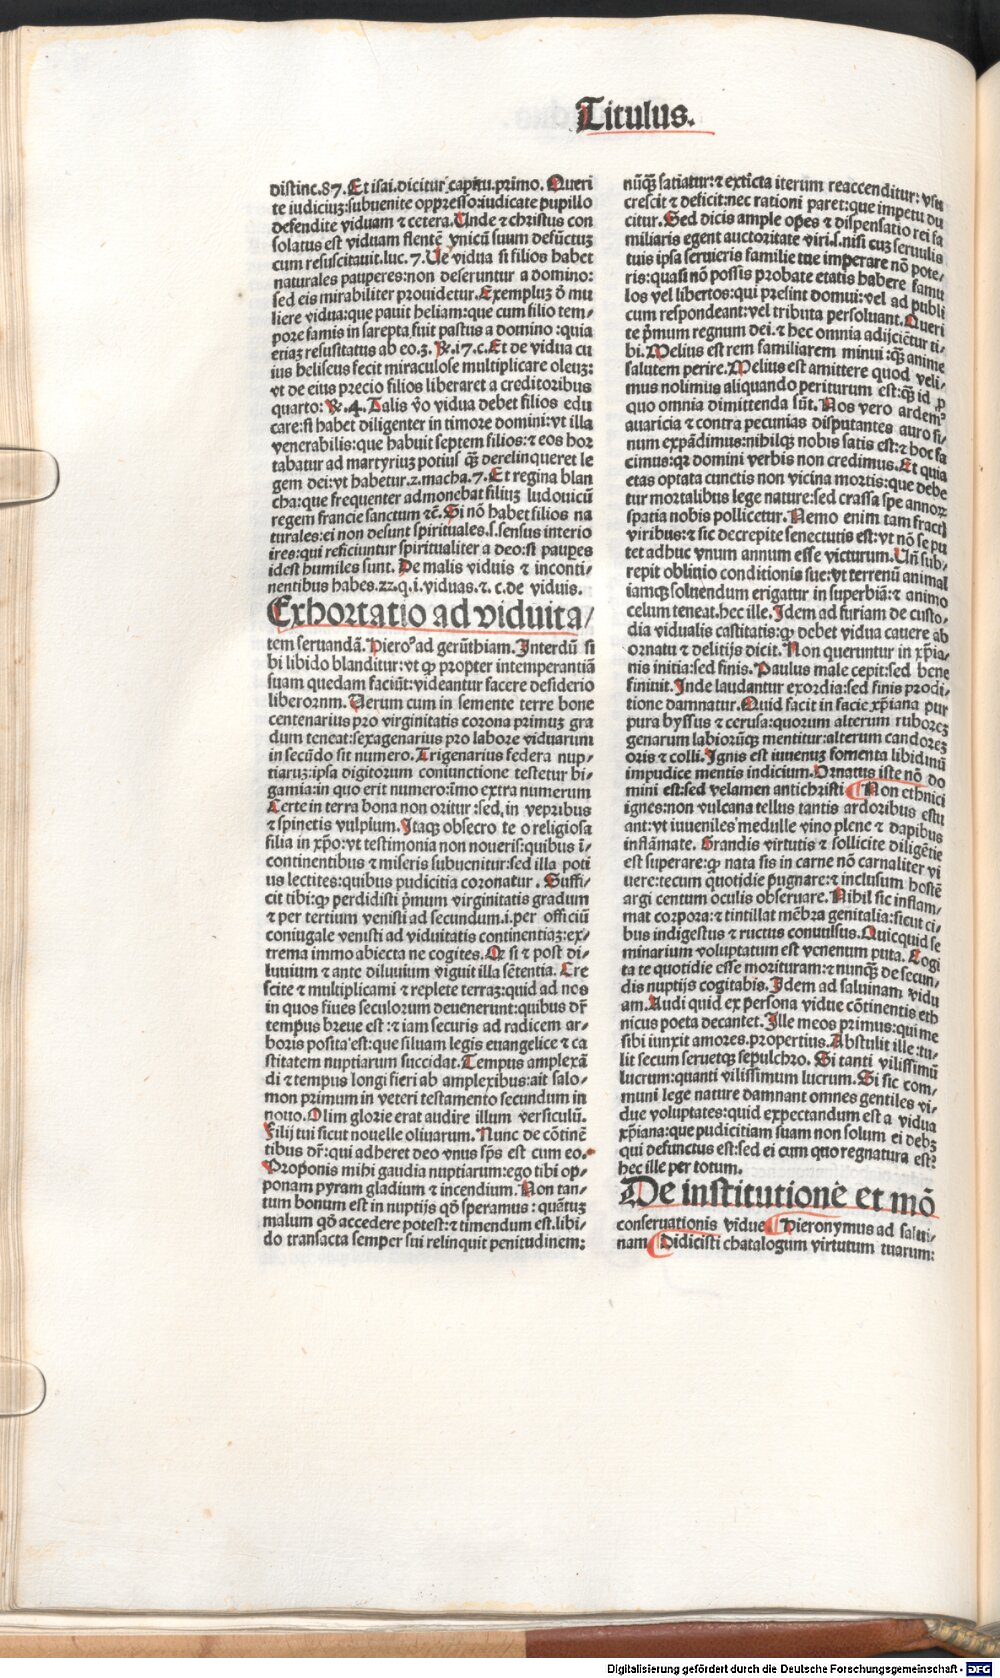 Titulus.
distinc.87. Et isai. dicitur capitu. primo. Queri
te iudiciuʒ: subuenite oppresso: iudicate pupillo
defendite viduam ⁊ cetera. Unde ⁊ christus con
solatus est viduam flentē vnicū suum defūctuʒ
cum resuscitauit. luc. 7. Ue vidua si filios habet
naturales pauperes: non deseruntur a domino:
sed eis mirabiliter prouidetur. Exempluʒ ō mu
liere vidua: que pauit heliam: que cum filio tem⸗
pore famis in sarepta fuit pastus a domino: quia
etiaʒ resusitatus ab eo. 3. R̄. i7. c. Et de vidua cu
ius heliseus fecit miraculose multiplicare oleuʒ:
vt de eius precio filios liberaret a creditoribus
quarto: R̄. 4. Talis v̄o vidua debet filios edu
care: si habet diligenter in timore domini: vt illa
venerabilis: que habuit septem filios: ⁊ eos hor
tabatur ad martyriuʒ potius q̄ʒ derelinqueret le
gem dei: vt habetur. 2. macha. 7. Et regina blan
cha: que frequenter admonebat filiuʒ ludouicū
regem francie sanctum ⁊c̄. Si nō habet filios na
turales: ei non desunt spirituales. s. sensus interio
ires: qui reficiuntur spiritualiter a deo: si paupes
idest humiles sunt. De malis viduis ⁊ inconti⸗
nentibus habes. 22. q. i. viduas. ⁊. c. de viduis.
Exhortatio ad viduita⸗
tem seruandā. Hiero⁹ ad gerūthiam. Interdū si
bi libido blanditur: vt ꝙ propter intemperantiā
suam quedam faciūt: videantur facere desiderio
liberornm. Uerum cum in semente terre bone
centenarius pro virginitatis corona primuʒ gra
dum teneat: sexagenarius pro labore viduarum
in secūdo sit numero. Trigenarius federa nup⸗
tiaruʒ: ipsa digitorum coniunctione testetur bi⸗
gamia: in quo erit numero: īmo extra numerum
Certe in terra bona non oritur: sed, in vepribus
⁊ spinetis vulpium. Itaqʒ obsecro te o religiosa
filia in xp̄o: vt testimonia non noueris: quibus ī⸗
continentibus ⁊ miseris subuenitur: sed illa poti
us lectites: quibus pudicitia coronatur. Suffi⸗
cit tibi: ꝙ perdidisti p̄mum virginitatis gradum
⁊ per tertium venisti ad secundum. i. per officiū
coniugale venisti ad viduitatis continentiaʒ: ex⸗
trema immo abiecta ne cogites. Qꝛ si ⁊ post di⸗
luuium ⁊ ante diluuium viguit illa sētentia. Cre
scite ⁊ multiplicami ⁊ replete terraʒ: quid ad nos
in quos fiues seculorum deuenerunt: quibus dr̄
tempus breue est: ⁊ iam securis ad radicem ar⸗
boris posita est: que siluam legis euangelice ⁊ ca
stitatem nuptiarum succidat. Tempus amplexā
di ⁊ tempus longi fieri ab amplexibus: ait salo⸗
mon primum in veteri testamento secundum in
nouo. Olim glorie erat audire illum versiculū.
Filij tui sicut nouelle oliuarum. Nunc de cōtinē
tibus dr̄: qui adheret deo vnus sp̄s est cum eo.
Proponis mihi gaudia nuptiarum: ego tibi op⸗
ponam pyram gladium ⁊ incendium. Non tan⸗
tum bonum est in nuptijs qō speramus: quātuʒ
malum qō accedere potest: ⁊ timendum est. libi⸗
do transacta semper sui relinquit penitudinem:
nūq̄ʒ satiatur: ⁊ exticta iterum reaccenditur: vsu
crescit ⁊ deficit: nec rationi paret: que impetu du
citur. Sed dicis ample opes ⁊ dispensatio rei fa
miliaris egent auctoritate viri. s. nisi cuʒ seruulis
tuis ipsa seruieris familie tue imperare nō pote⸗
ris: quasi nō possis probate etatis habere famu
los vel libertos: qui presint domui: vel ad publi
cum respondeant: vel tributa persoluant. Queri
te p̄mum regnum dei. ⁊ hec omnia adijciētur ti⸗
bi. Melius est rem familiarem minui: q̄ʒ anime
salutem perire. Melius est amittere quod veli⸗
mus nolimus aliquando periturum est: q̄ʒ id ꝓ
quo omnia dimittenda sūt. Nos vero ardem⁹
auaricia ⁊ contra pecunias disputantes auro si⸗
num expādimus: nihilqʒ nobis satis est: ⁊ hoc fa
cimus: qꝛ domini verbis non credimus. Et quia
etas optata cunctis non vicina mortis: que debe
tur mortalibus lege nature: sed crassa spe annoꝝ
spatia nobis pollicetur. Nemo enim tam fracti
viribus: ⁊ sic decrepite senectutis est: vt nō se pu
tet adhuc vnum annum esse victurum. Un̄ sub⸗
repit obliuio conditionis sue: vt terrenū animal
iamqʒ soluendum erigatur in superbiā: ⁊ animo
celum teneat. hec ille. Idem ad furiam de custo⸗
dia vidualis castitatis: ꝙ debet vidua cauere ab
ornatu ⁊ delitijs dicit. Non queruntur in xp̄ia⸗
nis initia: sed finis. Paulus male cepit: sed bene
finiuit. Inde laudantur exordia: sed finis prodi⸗
tione damnatur. Quid facit in facie xp̄iana pur
pura byssus ⁊ cerusa: quorum alterum ruboreʒ
genarum labiorūqʒ mentitur: alterum candoreʒ
oris ⁊ colli. Ignis est iuuenuʒ fomenta libidinū
impudice mentis indicium. Ornatus iste nō do
mini est: sed velamen antichristi Non ethnici
ignes: non vulcana tellus tantis ardoribus estu
ant: vt iuueniles medulle vino plene ⁊ dapibus
inflāmate. Grandis virtutis ⁊ sollicite diligētie
est superare: ꝙ nata sis in carne nō carnaliter vi
uere: tecum quotidie p̄ugnare: ⁊ inclusum hostē
argi centum oculis obseruare. Nihil sic inflam⸗
mat corpora: ⁊ tintillat mēbra genitalia: sicut ci⸗
bus indigestus ⁊ ructus conuulsus. Quicquid se
minarium voluptatum est venenum puta. Cogi
ta te quotidie esse morituram: ⁊ nunq̄ʒ de secun⸗
dis nuptijs cogitabis. Idem ad saluinam vidu
am. Audi quid ex persona vidue cōtinentis eth
nicus poeta decantet. Ille meos primus: qui me
sibi iunxit amores. propertius. Abstulit ille: tu⸗
lit secum seruetqʒ sepulchro. Si tanti vilissimū
lucrum: quanti vilissimum lucrum. Si sic com⸗
muni lege nature damnant omnes gentiles vi⸗
due voluptates: quid expectandum est a vidua
xp̄iana: que pudicitiam suam non solum ei debʒ
qui defunctus est: sed ei cum quo regnatura est?
hec ille per totum.
De institutione et mō
conseruationis vidue Hieronymus ad salui⸗
nam Didicisti chatalogum virtutum tuarum:
Digitalisierung gefördert durch die Deutsche Forschungsgemeinschaft - DFG